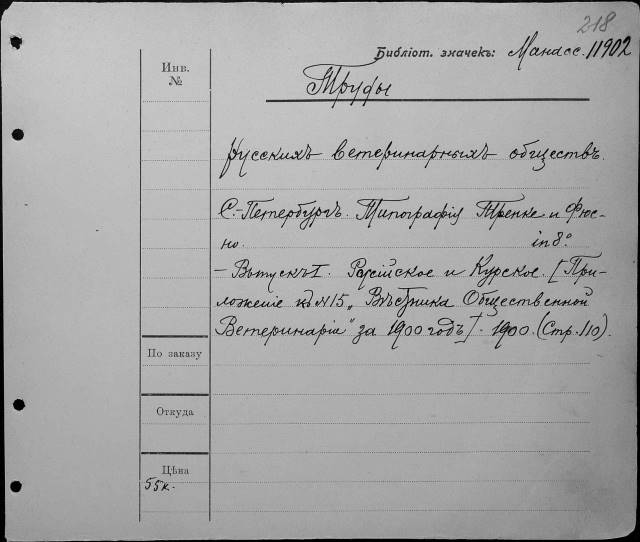 218
Библіот. значекъ: Манасс. 11902
Инв.
№
Труды
русскихъ ветеринарныхъ обществъ.
С.-Петербургъ. Типографія Тренке и Фюс-
но. in 8°.
— Выпускъ I. Россійское и Курское. [При-
ложеніе къ №15 „Вѣстника Общественной
Ветеринаріи" за 1900 годъ]. 1900. (Стр. 110).
По заказу
Откуда
Цѣна
55к.